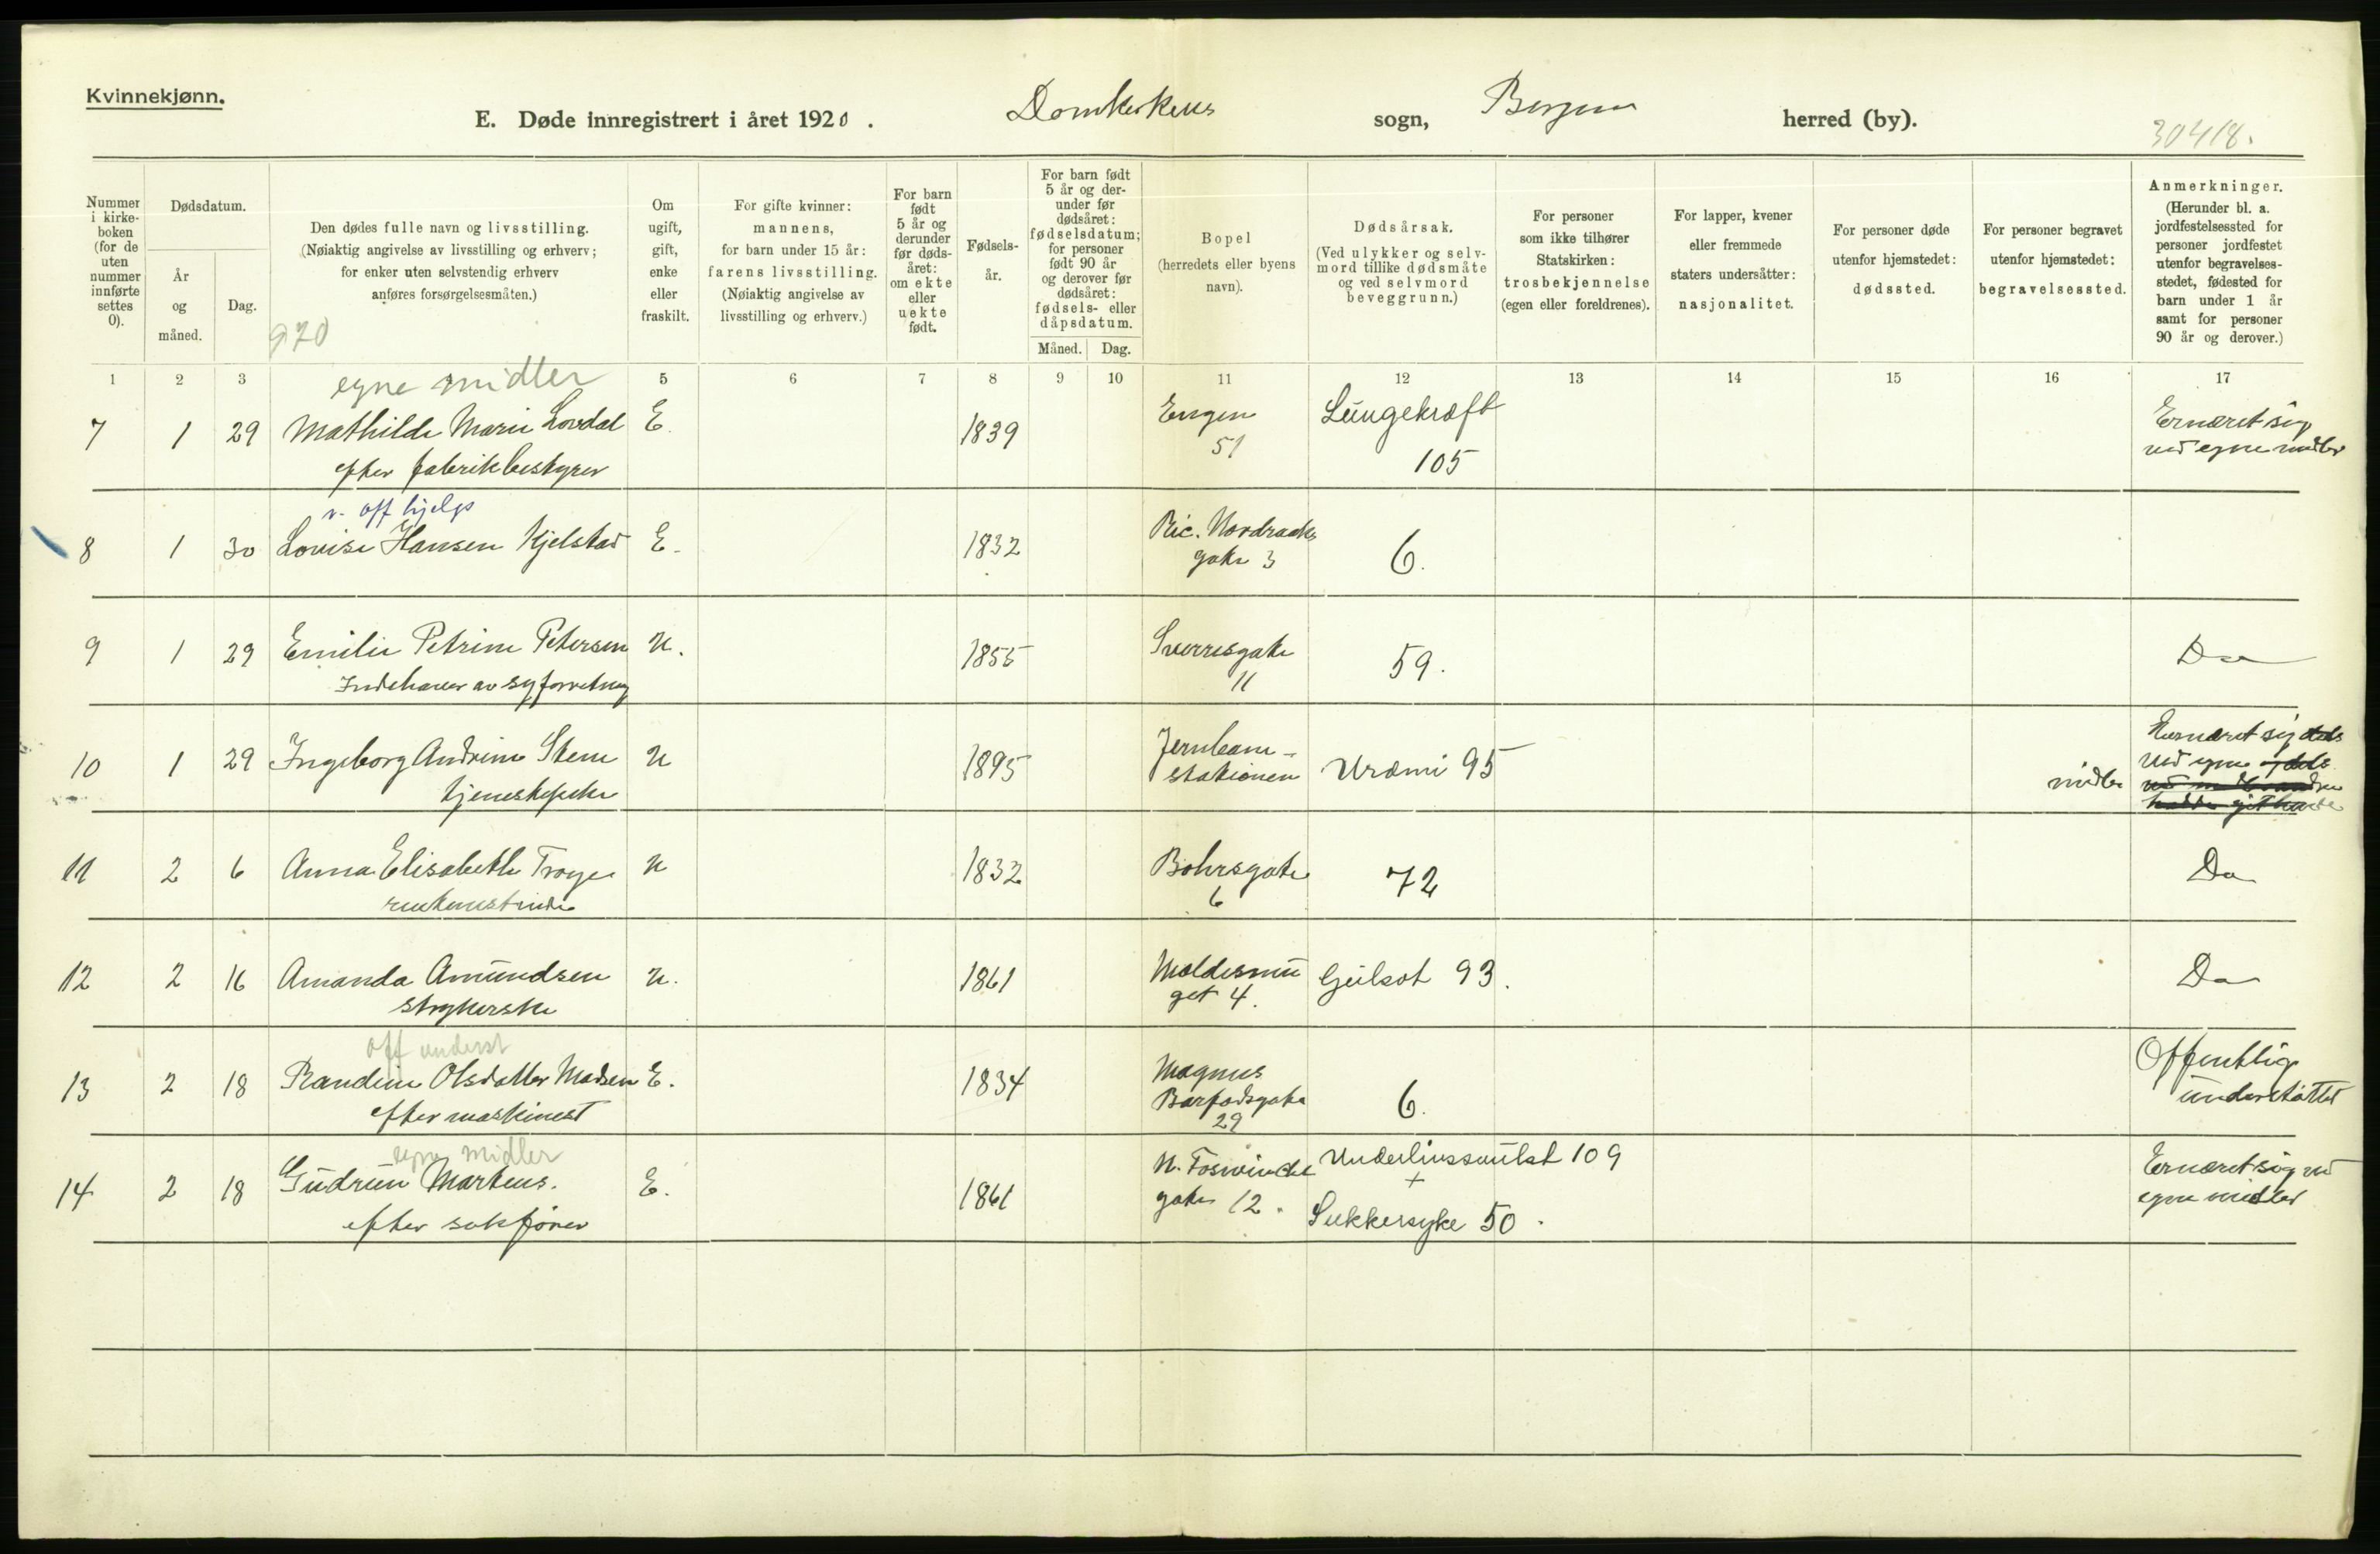 Kvinnekjønn.
E. Døde innregistrert i året 1920. Domkirkens sogn, Bergen herred (by).
30418.
Nummer i kirke-boken (for de uten nummer innførte settes 0).
Dødsdatum.
År og måned.
Dag.
Den dødes fulle navn og livsstilling.
(Nøiaktig angivelse av livsstilling og erhverv;
for enker uten selvstendig erhverv
anføres forsørgelsesmåten.)
920
Om ugift, gift, enke eller fraskilt.
For gifte kvinner:
mannens,
for barn under 15 år:
farens livsstilling.
(Nøiaktig angivelse av
livsstilling og erhverv.)
For barn født 5 år og derunder før døds-året: om ekte eller uekte født.
Fødsels-år.
For barn født 5 år og der-under før dødsåret: fødselsdatum; for personer født 90 år og derover før dødsåret: fødsels- eller dåpsdatum.
Måned. Dag.
Bopel
(herredets eller byens
navn).
Dødsårsak.
(Ved ulykker og selv-
mord tillike dødsmåte
og ved selvmord
beveggrunn.)
For personer
som ikke tilhører
Statskirken:
trosbekjennelse
(egen eller foreldrenes).
For lapper, kvener
eller fremmede
staters undersåtter:
nasjonalitet.
For personer døde
utenfor hjemstedet:
dødssted.
For personer begravet
utenfor hjemstedet:
begravelsessted.
Anmerkninger.
(Herunder bl. a.
jordfestelsessted for
personer jordfestet
utenfor begravelses-
stedet, fødested for
barn under 1 år
samt for personer
90 år og derover.)
1 2 3 5 6 7 8 9 10 11 12 13 14 15 16 17
egne midler
7 1 29 Mathilde Marie Lovdal E. 1839 Engen Lungekræft Ernæret sig
efter fabrikbestyrer 51 105 ved egne midler
v. off hjelp
8 1 30 Lovise Hansen Kjelstad E. 1832 Ric. Nordraaks
gate 3 6.
9 1 29 Emilie Petrine Petersen U. 1855 Sverresgate 59. Do
Indehaver av syforretning 11
10 1 29 Ingeborg Andrine Stene U 1895 Jernbane- Uræmi 95 Ernæret sig dels
tjenestepike stationen ved egne og dels
midler
11 2 6 Anna Elisabeth Troye U 1832 Bohrsgate 72 Do
6
12 2 16 Amanda Amundsen U. 1861 Moldesmu Gulsot 93. Do
strykerske get 4.
off underst
13 2 18 Randine Olsdatter Madsen E. 1834 Magnus Offentlig
efter maskinist Barfodsgate 6. understøttet
29
egne midler
14 2 18 Gudrun Martens. E. 1861 N. Foswinckel Underlivssvulst 109 Ernæret sig ved
efter sakfører gate 12. + egne midler
Sukkersyke 50.